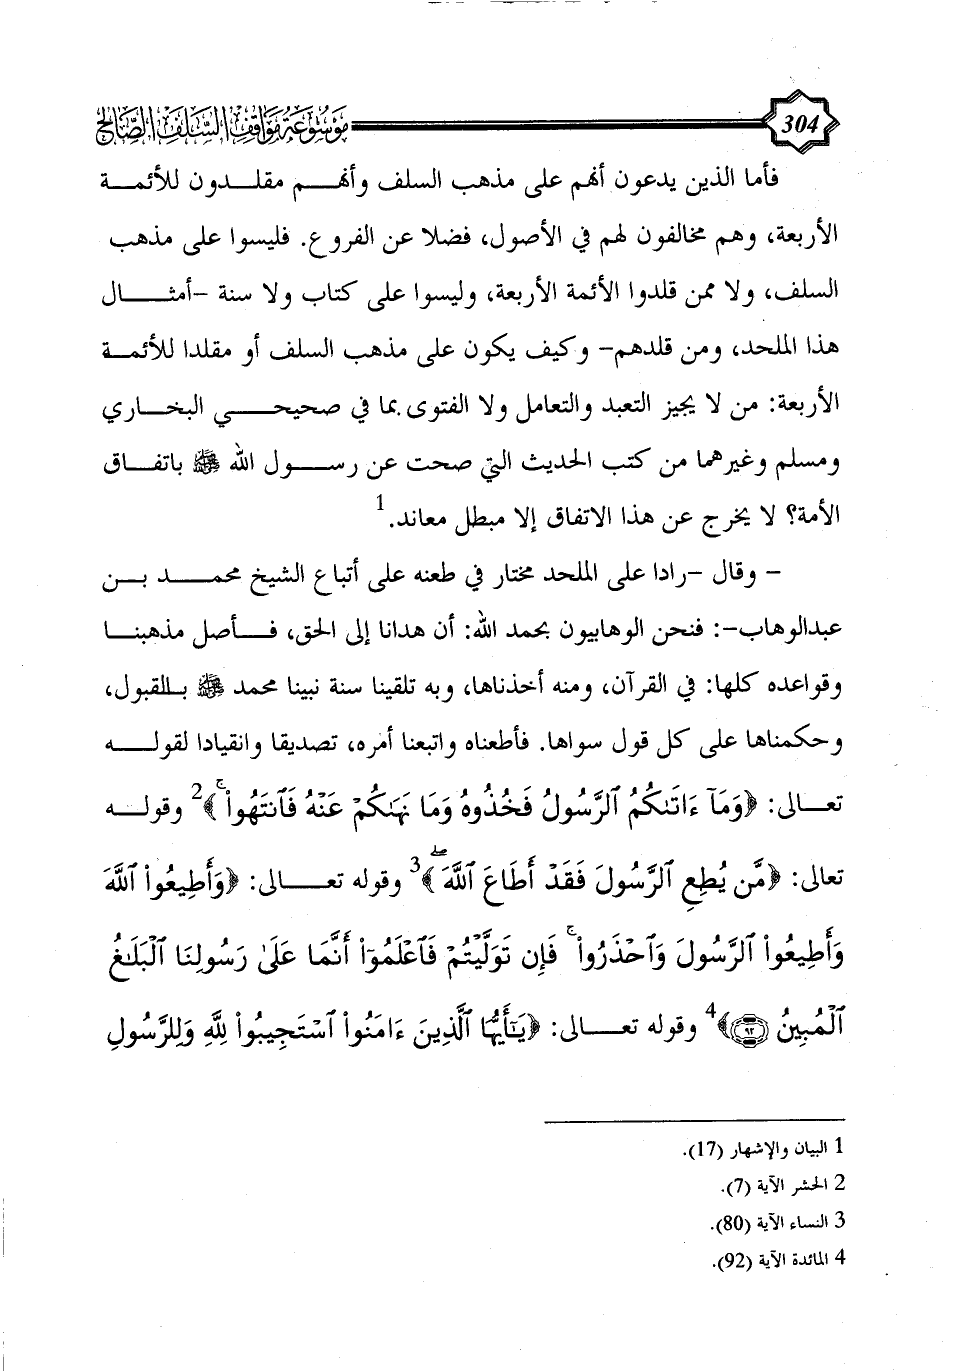 304
موسوعة مواقف السلف الصالح
فأما الذين يدعون أنهم على مذهب السلف وأنهم مقلدون للأئمة
الأربعة، وهم مخالفون لهم في الأصول، فضلا عن الفروع. فليسوا على مذهب
السلف، ولا ممن قلدوا الأئمة الأربعة، وليسوا على كتاب ولا سنة -أمثال
هذا الملحد، ومن قلدهم- وكيف يكون على مذهب السلف أو مقلدا للأئمة
الأربعة: من لا يجيز التعبد والتعامل ولا الفتوى بما في صحيحي البخاري
ومسلم وغيرهما من كتب الحديث التي صحت عن رسول الله ﷺ باتفاق
الأمة؟ لا يخرج عن هذا الاتفاق إلا مبطل معاند.1
- وقال -رادا على الملحد مختار في طعنه على أتباع الشيخ محمد بن
عبدالوهاب-: فنحن الوهابيون بحمد الله: أن هدانا إلى الحق، فأصل مذهبنا
وقواعده كلها: في القرآن، ومنه أخذناها، وبه تلقينا سنة نبينا محمد ﷺ بالقبول،
وحكمناها على كل قول سواها. فأطعناه واتبعنا أمره، تصديقا وانقيادا لقوله
تعالى: ﴿وَمَآ ءَاتَىٰكُمُ ٱلرَّسُولُ فَخُذُوهُ وَمَا نَهَىٰكُمْ عَنْهُ فَٱنتَهُوا۟ ۚ﴾2 وقوله
تعالى: ﴿مَّن يُطِعِ ٱلرَّسُولَ فَقَدْ أَطَاعَ ٱللَّهَ ۖ﴾3 وقوله تعالى: ﴿وَأَطِيعُوا۟ ٱللَّهَ
وَأَطِيعُوا۟ ٱلرَّسُولَ وَٱحْذَرُوا۟ ۚ فَإِن تَوَلَّيْتُمْ فَٱعْلَمُوٓا۟ أَنَّمَا عَلَىٰ رَسُولِنَا ٱلْبَلَـٰغُ
ٱلْمُبِينُ ﴿٩٢﴾﴾4 وقوله تعالى: ﴿يَـٰٓأَيُّهَا ٱلَّذِينَ ءَامَنُوا۟ ٱسْتَجِيبُوا۟ لِلَّهِ وَلِلرَّسُولِ
1 البيان والإشهار (17).
2 الحشر الآية (7).
3 النساء الآية (80).
4 المائدة الآية (92).